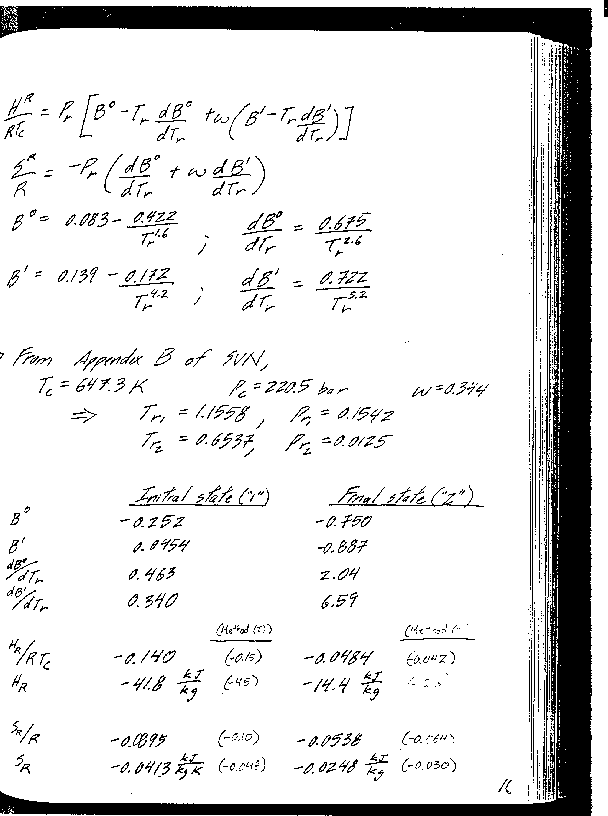 H^R/RT_c = P_r [B° - T_r dB°/dT_r + ω(B' - T_r dB'/dT_r)]
S^R/R = -P_r (dB°/dT_r + ω dB'/dT_r)
B° = 0.083 - 0.422/T_r^1.6 ; dB°/dT_r = 0.675/T_r^2.6
B' = 0.139 - 0.172/T_r^4.2 ; dB'/dT_r = 0.722/T_r^5.2
From Appendix B of SVN,
T_c = 647.3 K P_c = 220.5 bar ω = 0.344
⇒ T_r1 = 1.1558, P_r1 = 0.1542
T_r2 = 0.6537, P_r2 = 0.0125
Initial state ("1") Final state ("2")
B° -0.252 -0.750
B' 0.0454 -0.887
dB°/dT_r 0.463 2.04
dB'/dT_r 0.340 6.59
(Method (Method
H_R/RT_c -0.140 (-0.15) -0.0484 (-0.042)
H_R -41.8 kJ/kg (-45) -14.4 kJ/kg
S_R/R -0.0895 (-0.10) -0.0538 (-0.064)
S_R -0.0413 kJ/kg K (-0.048) -0.0248 kJ/kg (-0.030)